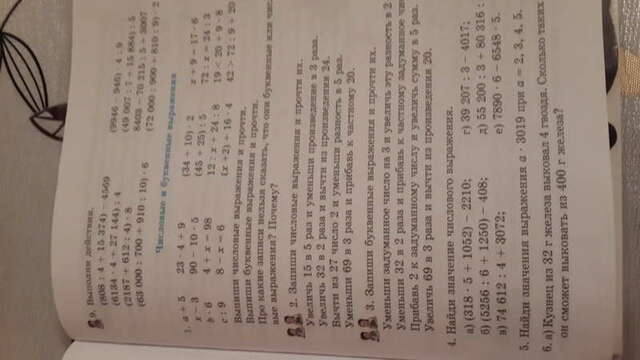 9. Выполни действия.
(808 : 4 + 15 374) - 4569
(6134 · 4 - 27 144) : 4
(2187 : 612 : 4) · 8
(63 000 : 700 + 910 : 10) · 6
(9946 - 946) : 4 : 9
(49 007 : 7 + 15 884) : 5
8403 - 70 215 : 5 + 3007
(72 000 : 900 + 810 : 9) · 2
Числовые и буквенные выражения
1. a + 5 23 · 4 - 9 (34 + 10) : 2 x + 9 - 17 · 6
x - 3 90 : 10 · 5 (45 + 25) : 5 72 : x - 24 : 3
b · 6 4 + x - 98 12 : x + 24 : 8 19 < 20 + 9 · 8
c : 9 8 - x - 6 (x + 2) - 16 · 4 42 > 72 : 9 + 20
Выпиши числовые выражения и прочти.
Выпиши буквенные выражения и прочти.
Про какие записи нельзя сказать, что они буквенные или
вые выражения? Почему?
2. Запиши числовые выражения и прочти их.
Увеличь 15 в 5 раз и уменьши произведение в 3 раза.
Увеличь 32 в 2 раза и вычти из произведения 24.
Вычти из 27 число 2 и уменьши разность в 5 раз.
Уменьши 69 в 3 раза и прибавь к частному 20.
3. Запиши буквенные выражения и прочти их.
Уменьши задуманное число на 3 и увеличь эту разность в 2
Уменьши 32 в 2 раза и прибавь к частному задуманное
Прибавь 2 к задуманному числу и увеличь сумму в 5 раз.
Увеличь 69 в 3 раза и вычти из произведения 20.
4. Найди значение числового выражения.
а) (318 · 5 + 1052) - 2210; г) 39 207 : 3 - 4017;
б) (5256 : 6 + 1250) - 408; д) 55 200 : 3 + 80 316 :
в) 74 612 : 4 + 3072; е) 7890 · 6 - 6548 · 5.
5. Найди значения выражения a · 3019 при a = 2, 3, 4, 5.
6. а) Кузнец из 32 г железа выковал 4 гвоздя. Сколько таких
он сможет выковать из 400 г железа?